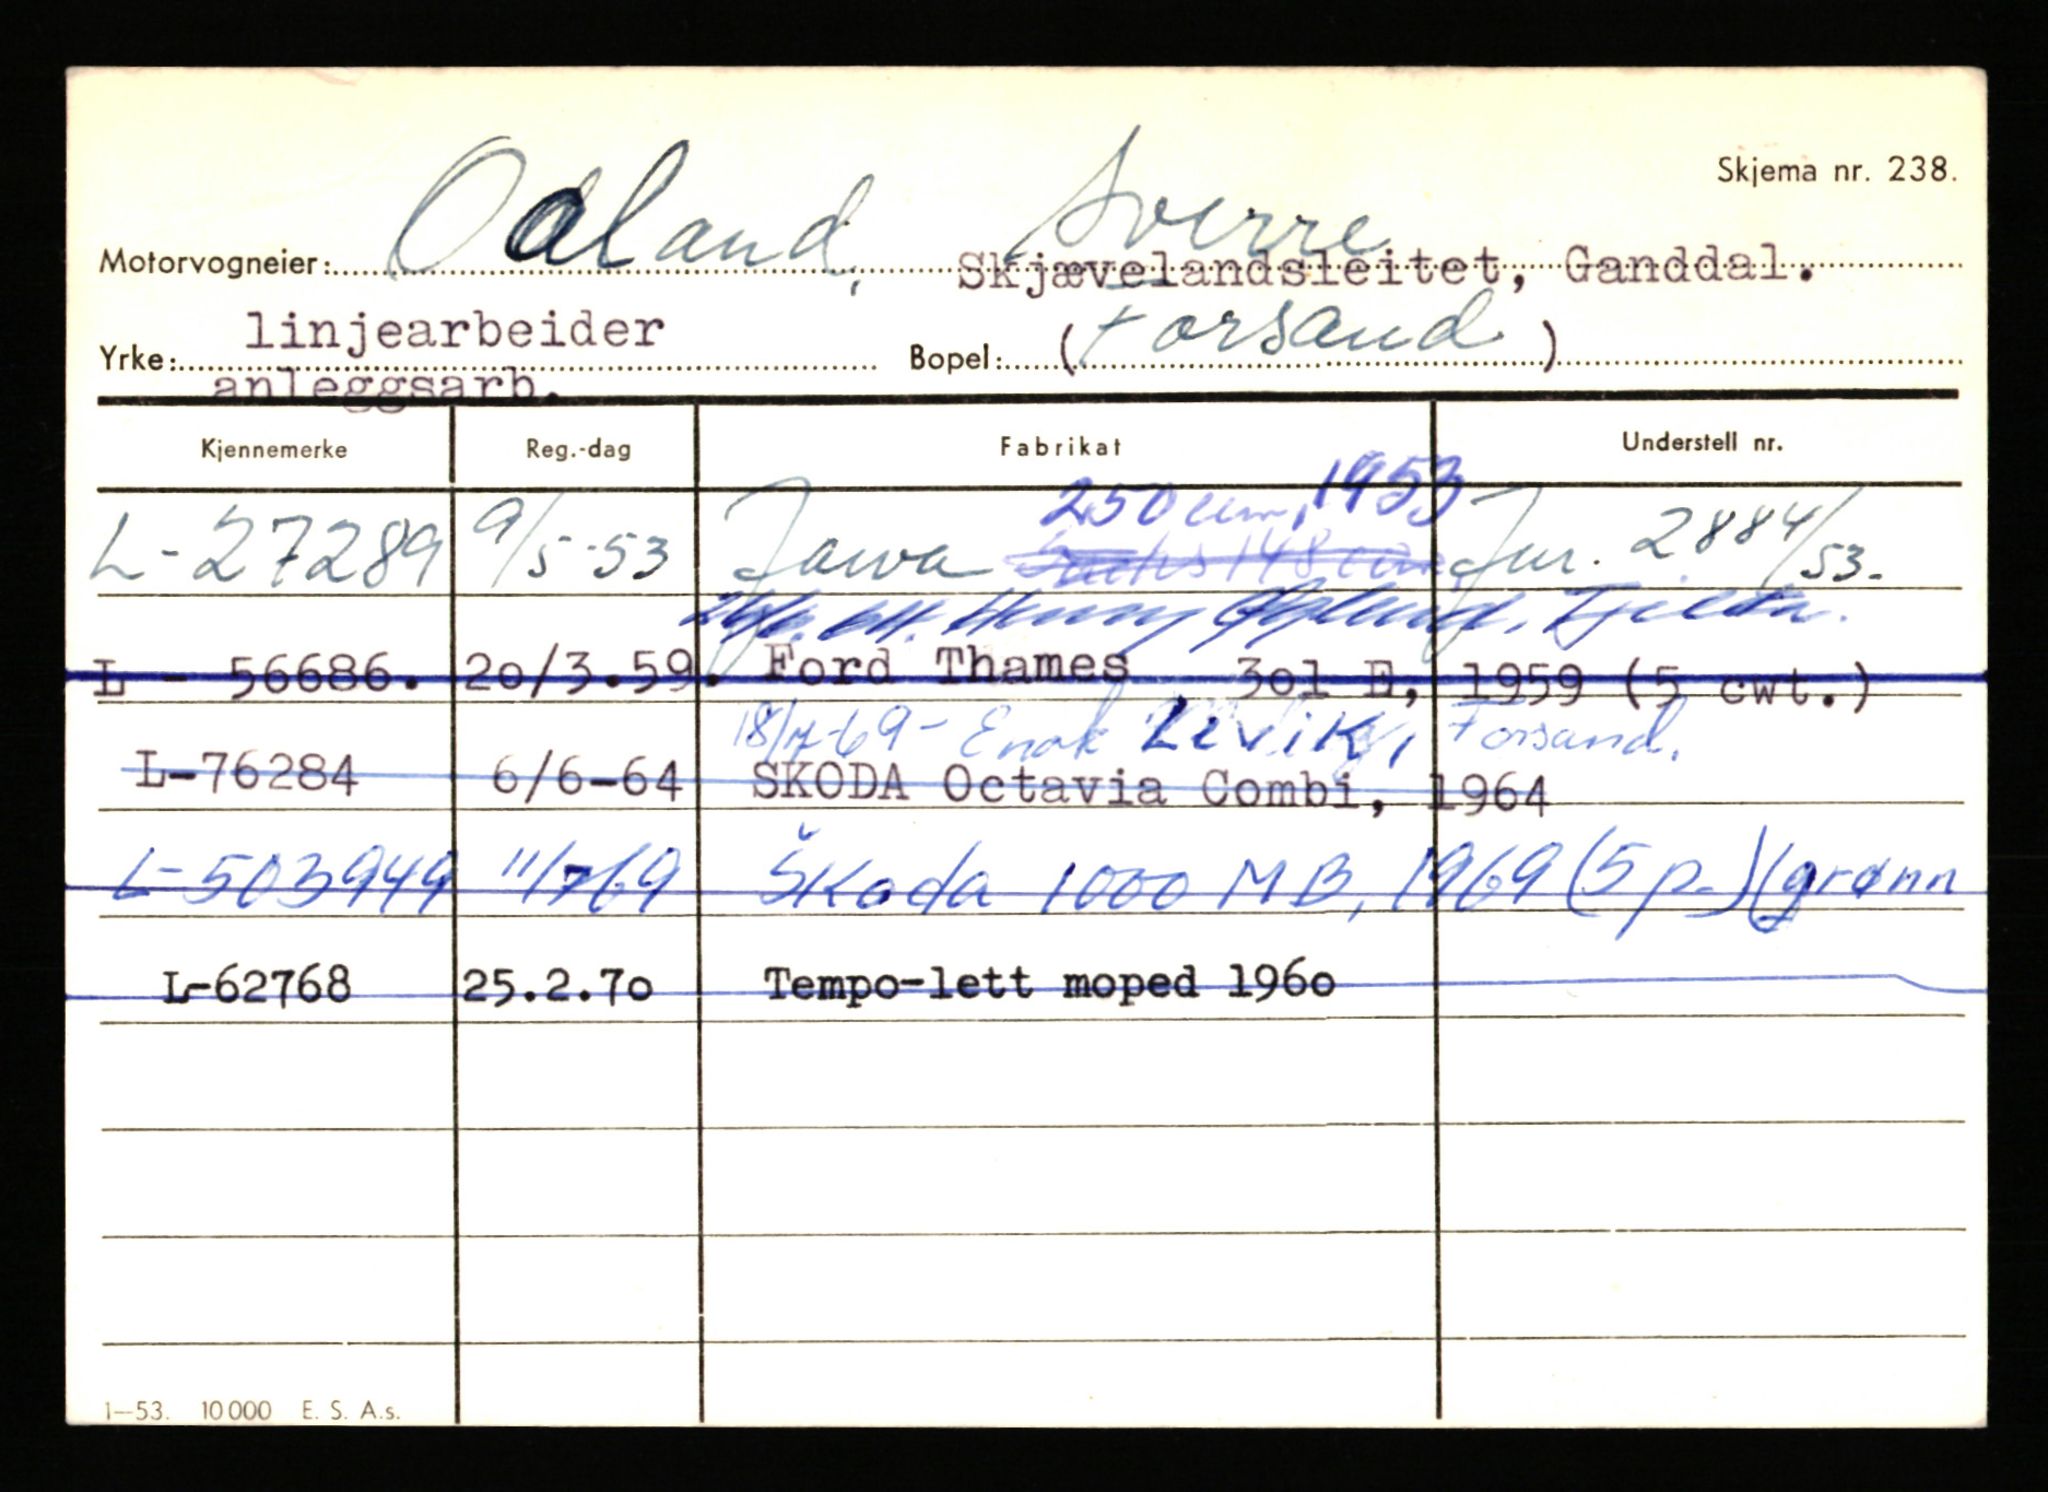 Skjema nr. 238.
Motorvogneier: Oaland, Sverre
Skjævelandsleitet, Ganddal.
linjearbeider
Yrke: anleggsarb. Bopel: (Forsand)
Kjennemerke Reg.-dag Fabrikat Understell nr.
250 ccm, 1953
L-27289 9/5-53 Jawa Sachs 148 ccm Jnr. 2884/53.
L - 56686. 20/3.59. Ford Thames 301 E, 1959 (5 cwt.)
18/7-69 - Enok Levik, Forsand.
L-76284 6/6-64 SKODA Octavia Combi, 1964
L-503949 11/769 Škoda 1000 MB, 1969 (5 p.) (grønn
L-62768 25.2.70 Tempo-lett moped 1960
1-53. 10000 E. S. A.s.